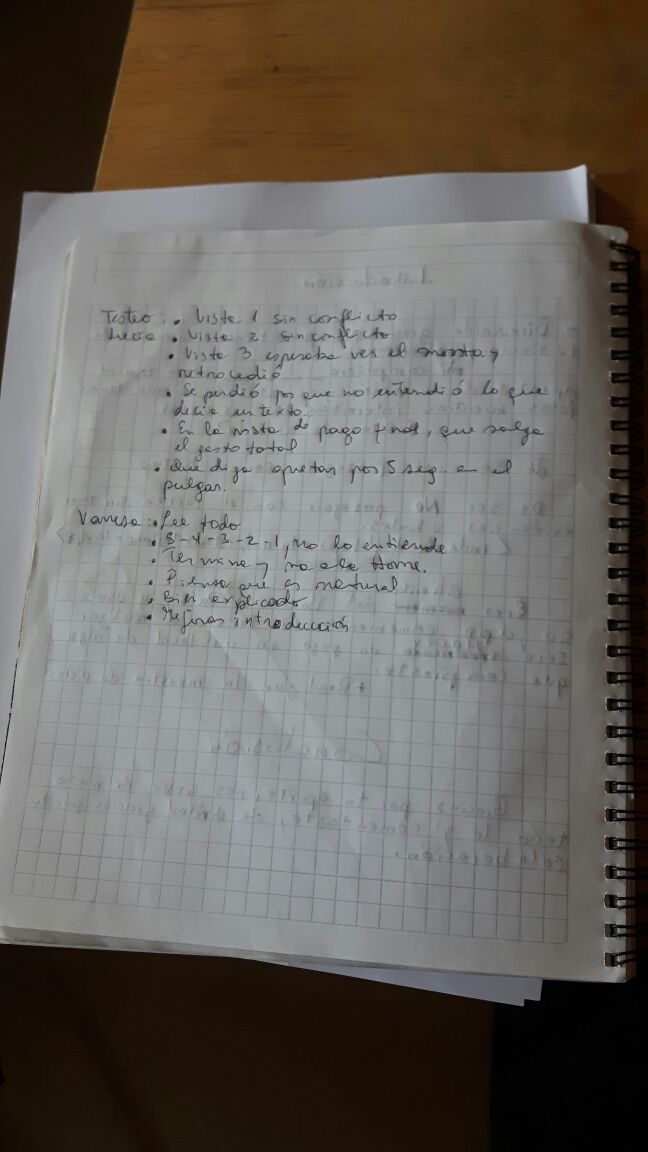 Testeo: • Vista 1 sin conflicto
• Vista 2 sin conflicto
• Vista 3 esperaba ver el monto y
retrocedió
• Se perdió por que no entendió lo que
decia en texto.
• En la vista de pago final, que salga
el gasto total
• Que diga apretar por 5 seg. en el
pulgar.
Vanesa: • Lee todo
• 5-4-3-2-1, no lo entiende
• Termina y va a la Home.
• Piensa que es natural
• Bien explicado
• Mejorar introducción